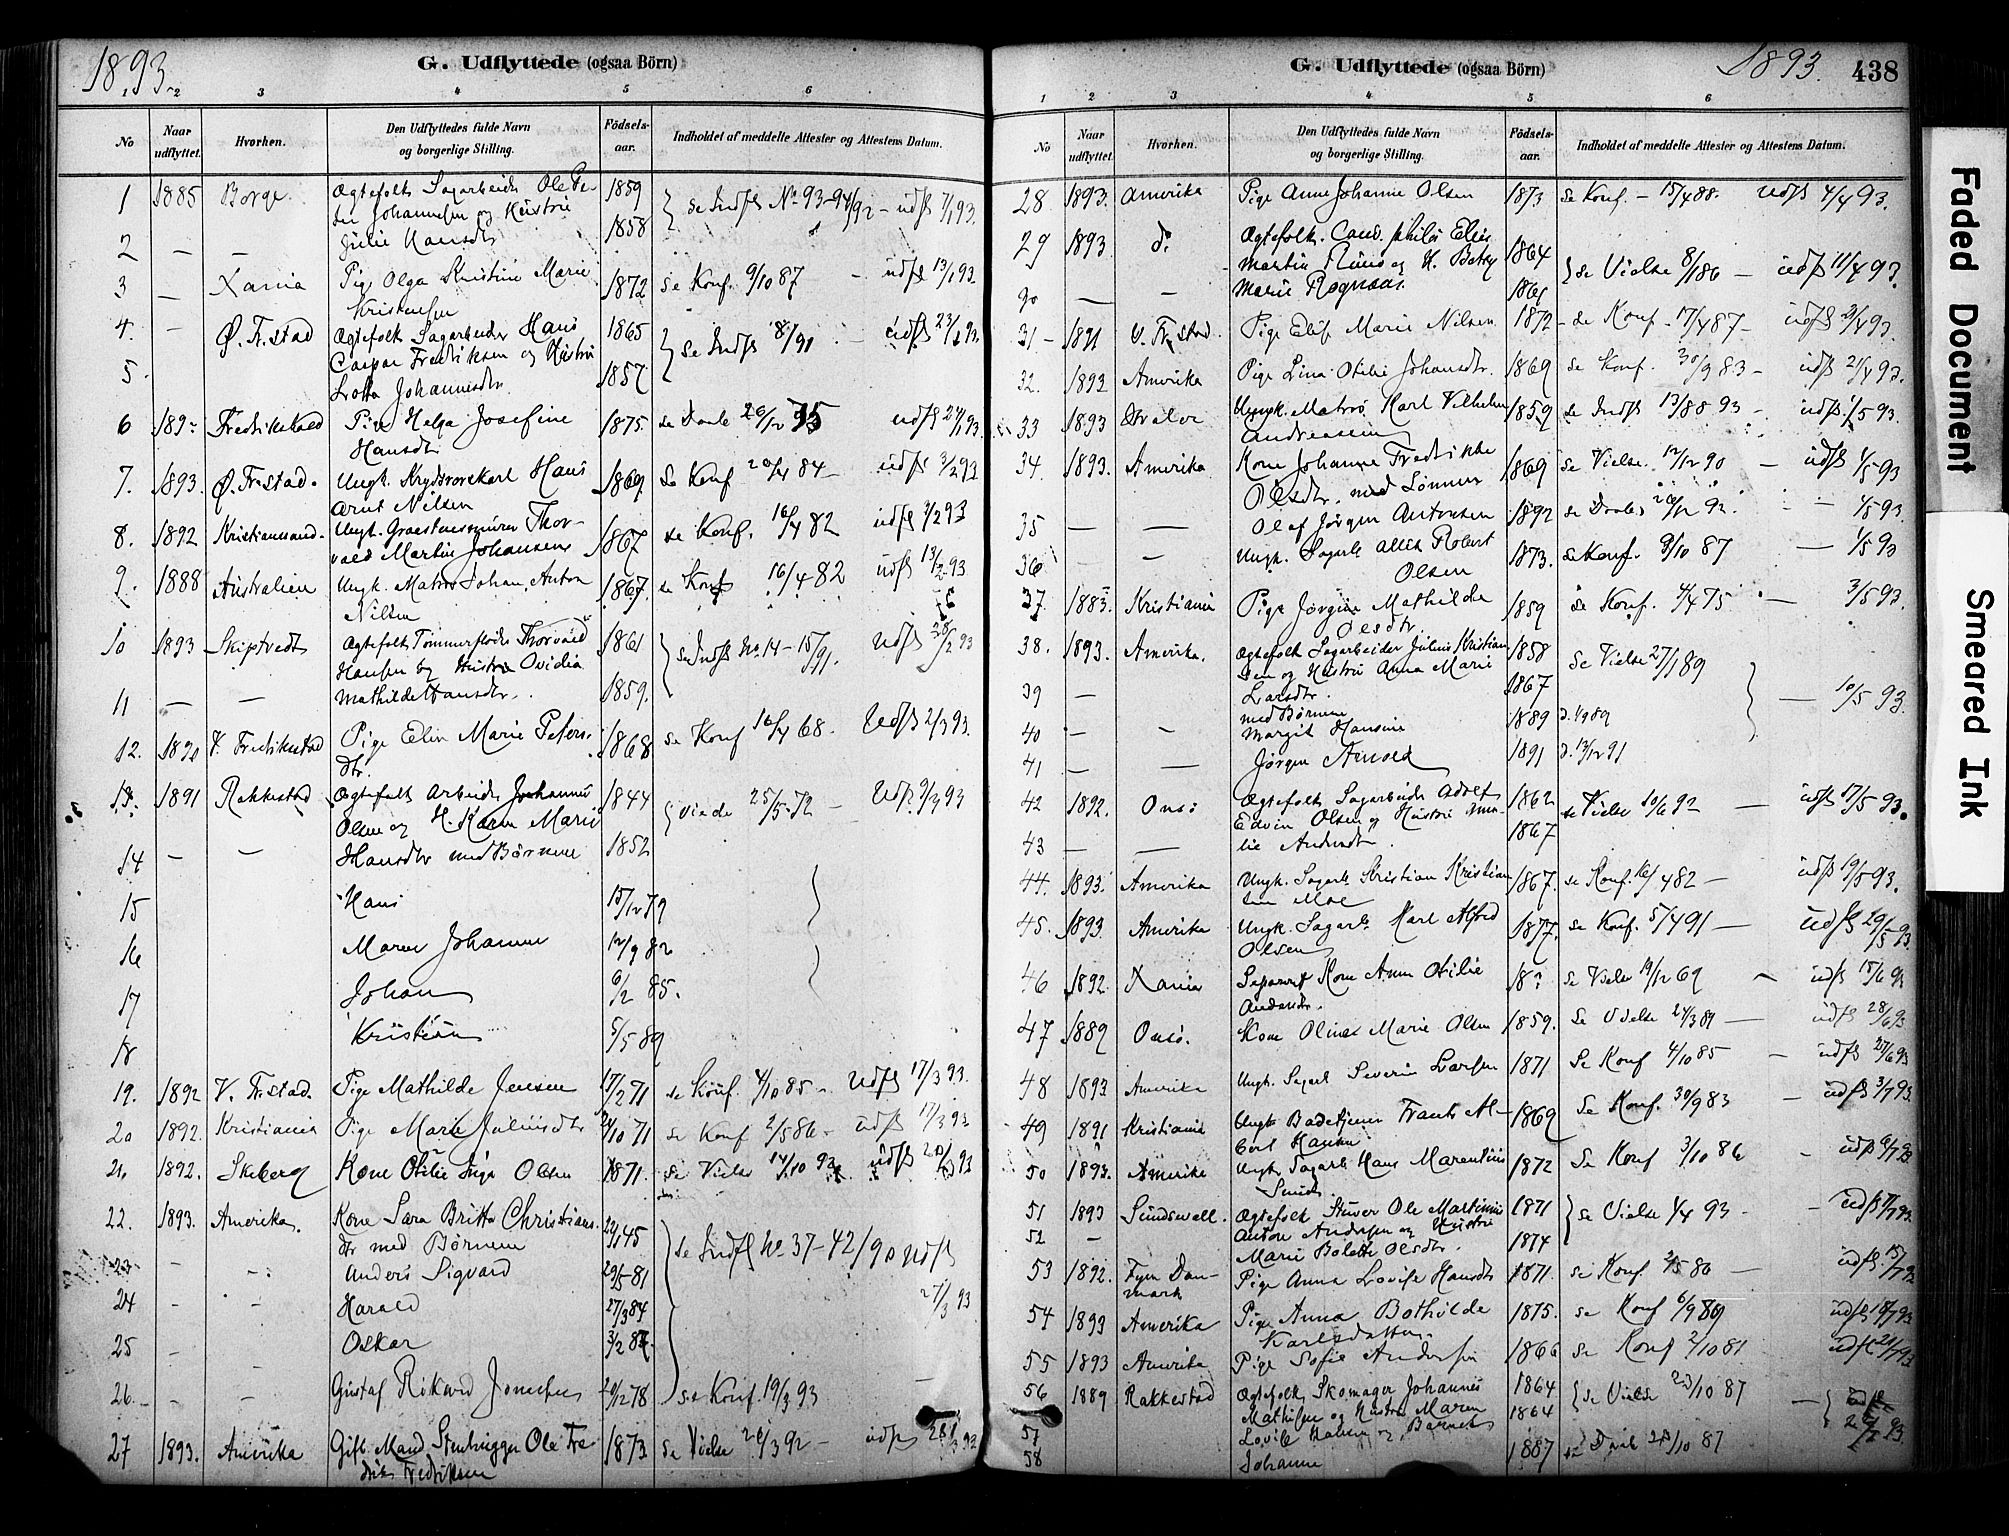 1893
G. Udflyttede (ogsaa Börn)
1 2 3 4 5 6
No
Naar udflyttet.
Hvorhen.
Den Udflyttedes fulde Navn og borgerlige Stilling.
Födsels-aar.
Indholdet af meddelte Attester og Attestens Datum.
1 1885 Borge Ægtefolk Sagarbeider Ole Pe- 1859
ter Johannesen og Hustru se Indfl No 93-94/92 - udfl 7/1 93.
2 — — Julie Hansdtr 1858
3 — Xania Pige Olga Kristine Marie 1872 se Konf. 9/10 87 — udfl 13/1 93.
Kristensen
4. — Ø. Fr.stad Ægtefolk Sagarbeider Hans 1865
Caspar Fredriksen og Hustru se Indfl 8/91 udfl 23/1 93
5 Lotta Johannesdtr 1857
6 Fredrikshald Pige Helga Josefine 1875. se Daab 26/12 75 udfl 24/1 93
Hansdtr
7. 1893. Ø. Frestad. Ungk. Hans 1869 se Konf 20/4 84 — udfl 3/2 93
Arnt Nilsen
8. 1892 Kristianssand. Ungk. Thor- 1867 se Konf. 16/4 82 udfl 3/2 93
vald Martin Johansen
9. 1888 Australien Ungk. Matros Johan Anton 1867. se Konf 16/4 82 udfl 13/2 93
Nilsen
10 1893 Skiptvedt Ægtefolk Tømmerfløder Thorvald 1861
Hansen og Hustru Ovidia se Indfl No. 14-15/91. udfl 28/2 93
11 — — Mathilde Hansdtr. 1859.
12. V. Fredrikstad Pige Elin Marie Peters- 1868 se Konf 16/4 68. Udfl 2/3 93.
dtr.
13. 1891 Rakkestad Ægtefolk Arbeider Johannes 1844
Olsen og H. Karen Marie viede 25/5 72 — Udfl. 9/3 93
14 — — Hansdtr med Børnene 1852
15 Hans 15/12 79
16 Maren Johanne 12/9 82
17 Johan 6/2 85.
18 Kristian 5/5 89
19. 1892 V. Fr.stad. Pige Mathilde Jensen 17/2 71 se Konf. 4/10 85 - Udfl 17/3 93.
20 1892. Kristiania Pige Marie Juliusdtr 24/10 71 se Konf 2/5 86 - udfl 17/3 93
21. 1892. Skeberg Kone Otilie Inga Olsen 1871. se Vielse 14/10 92. udfl 20/3 93
22. 1893. Amerika. Kone Sara Britta Christians- 45
dtr med Børnene se Indfl No 37-42/90 udfl
23 - - Anders Sigvard 29/5 81
24 - - Harald 27/3 84 27/3 93
25 - - Oskar 3/2 87.
26. - - Gustaf Rikard Jonsesen 20/12 78 se Konf. 19/3 93 —
27 1893. Amerika Gift Mand Stenhugger Ole Fre- 1873 se Vielse 26/3 92 — udfl 28/3 93
driks Fredriksen
G. Udflyttede (ogsaa Börn)
1893. 438
1 2 3 4 5 6
No
Naar udflyttet.
Hvorhen.
Den Udflyttedes fulde Navn og borgerlige Stilling.
Födsels-aar.
Indholdet af meddelte Attester og Attestens Datum.
28 1893. Amerika Pige Anne Johanne Olsen 1873 se Konf. — 15/4 88. Udfl 4/4 93.
29 1893 do Ægtefolk. Cand. philos Elias 1864
Martin og H. Betty se Vielse 8/1 86 — udfl 11/4 93.
30 — — Marie
31 - 1891 V. Fr.stad. Pige Elise Marie Nilsen 1872 - se Konf. 17/4 87 - udfl 21/4 93.
32. 1892 Amerika Pige Lina Otilie Johansdtr. 1869 se Konf. 30/9 83 - udfl 21/4 93.
33 1893 Hvaler Ungk. Matros Karl Vilhelm 1859 se Indfl 13/88 93 — udfl. 1/5 93.
Andreassen
34. 1893. Amerika Kone Johanne Fredrikke 1869 se Vielse. 12/12 90 — udfl 1/5 93
Olsdtr. med Sønnen
35 — — Olaf Jørgen Antonsen 1892 se Daab 26/12 92. — 1/5 93.
36 — Ungk. Sagarb. Robert 1873. se Konf. 9/10 87 — 1/5 93
Olsen
37. 1883. Kristiania Pige Jørgine Mathilde 1859 se Konf. 4/4 75 — 3/5 93.
Olsdtr
38. 1893. Amerika. Ægtefolk Sagarbeider Julius Kristian- 1858 se Vielse 27/1 89
sen og Hustru Anna Marie
39 — Larsdtr. 1867 — 10/5 93.
med Børnene
40 — - Margit Hansine 1889 d. 1/9 89
41 — — Jørgen Arnold 1891 d. 13/12 91
42 1892. Onsø Ægtefolk Sagarbeider Adolf 1862 se Vielse 19/6 92 — udfl 17/5 93.
Edvin Olsen og Hustru Ama-
43 — — lie Andersdtr. 1867
44. 1893. Amerika Ungk. Sagarb. Kristian Kristian- 1867. se Konf. 16/4 82 — udfl 19/5 93.
sen Moe
45. 1893. Amerika Ungk. Sagarb. Karl Alfred 1877. se Konf. 5/4 91 — udfl 29/5 93.
Olsen
46 1892. Xania Separeret Kone Anne Otilie 18 ? se Vielse 19/12 69 udfl 15/6 93
Andersdtr.
47 1889 Onsø. Kone Oline Marie Olsen 1859. se Vielse 24/3 89 — udfl 28/6 93
48 1893 Amerika Ungk. Sagarb. Severin Larsen 1871 se Konf 4/10 85 - udfl 27/6 93
49 1891 Kristiania Ungk. Badetjener Frants Al- 1869 se Konf. 30/9 83 — udfl 3/7 93.
bert Hansen
50 1893. Amerika Ungk. Sagarb. Hans Marentius 1872 se Konf 3/10 86 - udfl 6/7 93
51 1893 Sundswall. Ægtefolk Stuver Ole Martinius 1871 se Vielse 1/4 93 - udfl 7/7 93
Anton Andersen og Hustru
52 — Marie Bolette Olsdtr. 1874
53 1892. Fyen Dan- Pige Anna Lovise Hansdtr 1871. se Konf. 2/5 86 — udfl. 15/7 93
mark
54 1893 Amerika Pige Anna Bothilde 1875. se Konf 6/9 89 udfl 18/7 93
Karlsdatter.
55 1893 Amerika Pige Sofie Andersen 1866 se Konf 2/10 81 udfl 21/7 93
56 1889 Rakkestad Ægtefolk Skomager Johannes 1864 se Vielse 23/10 87
Mathisen og Hustru Maren 1864
57 Lovise og Barnet 93.
58 Johanne 1887 se Daab 28/10 87
Faded Document
Smeared Ink